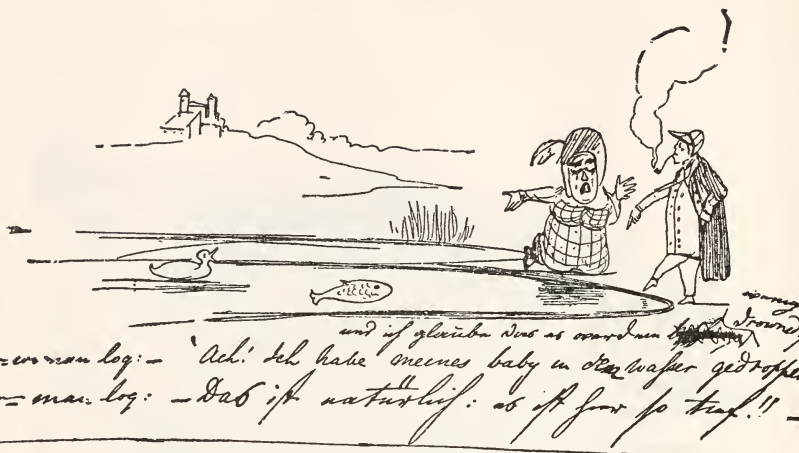 und ich glaube das es werden drowned
log: – 'Ach! Ich habe meines baby in den wasser gedroppe
log: – Das ist natürlich: es ist hier so tief.!! –